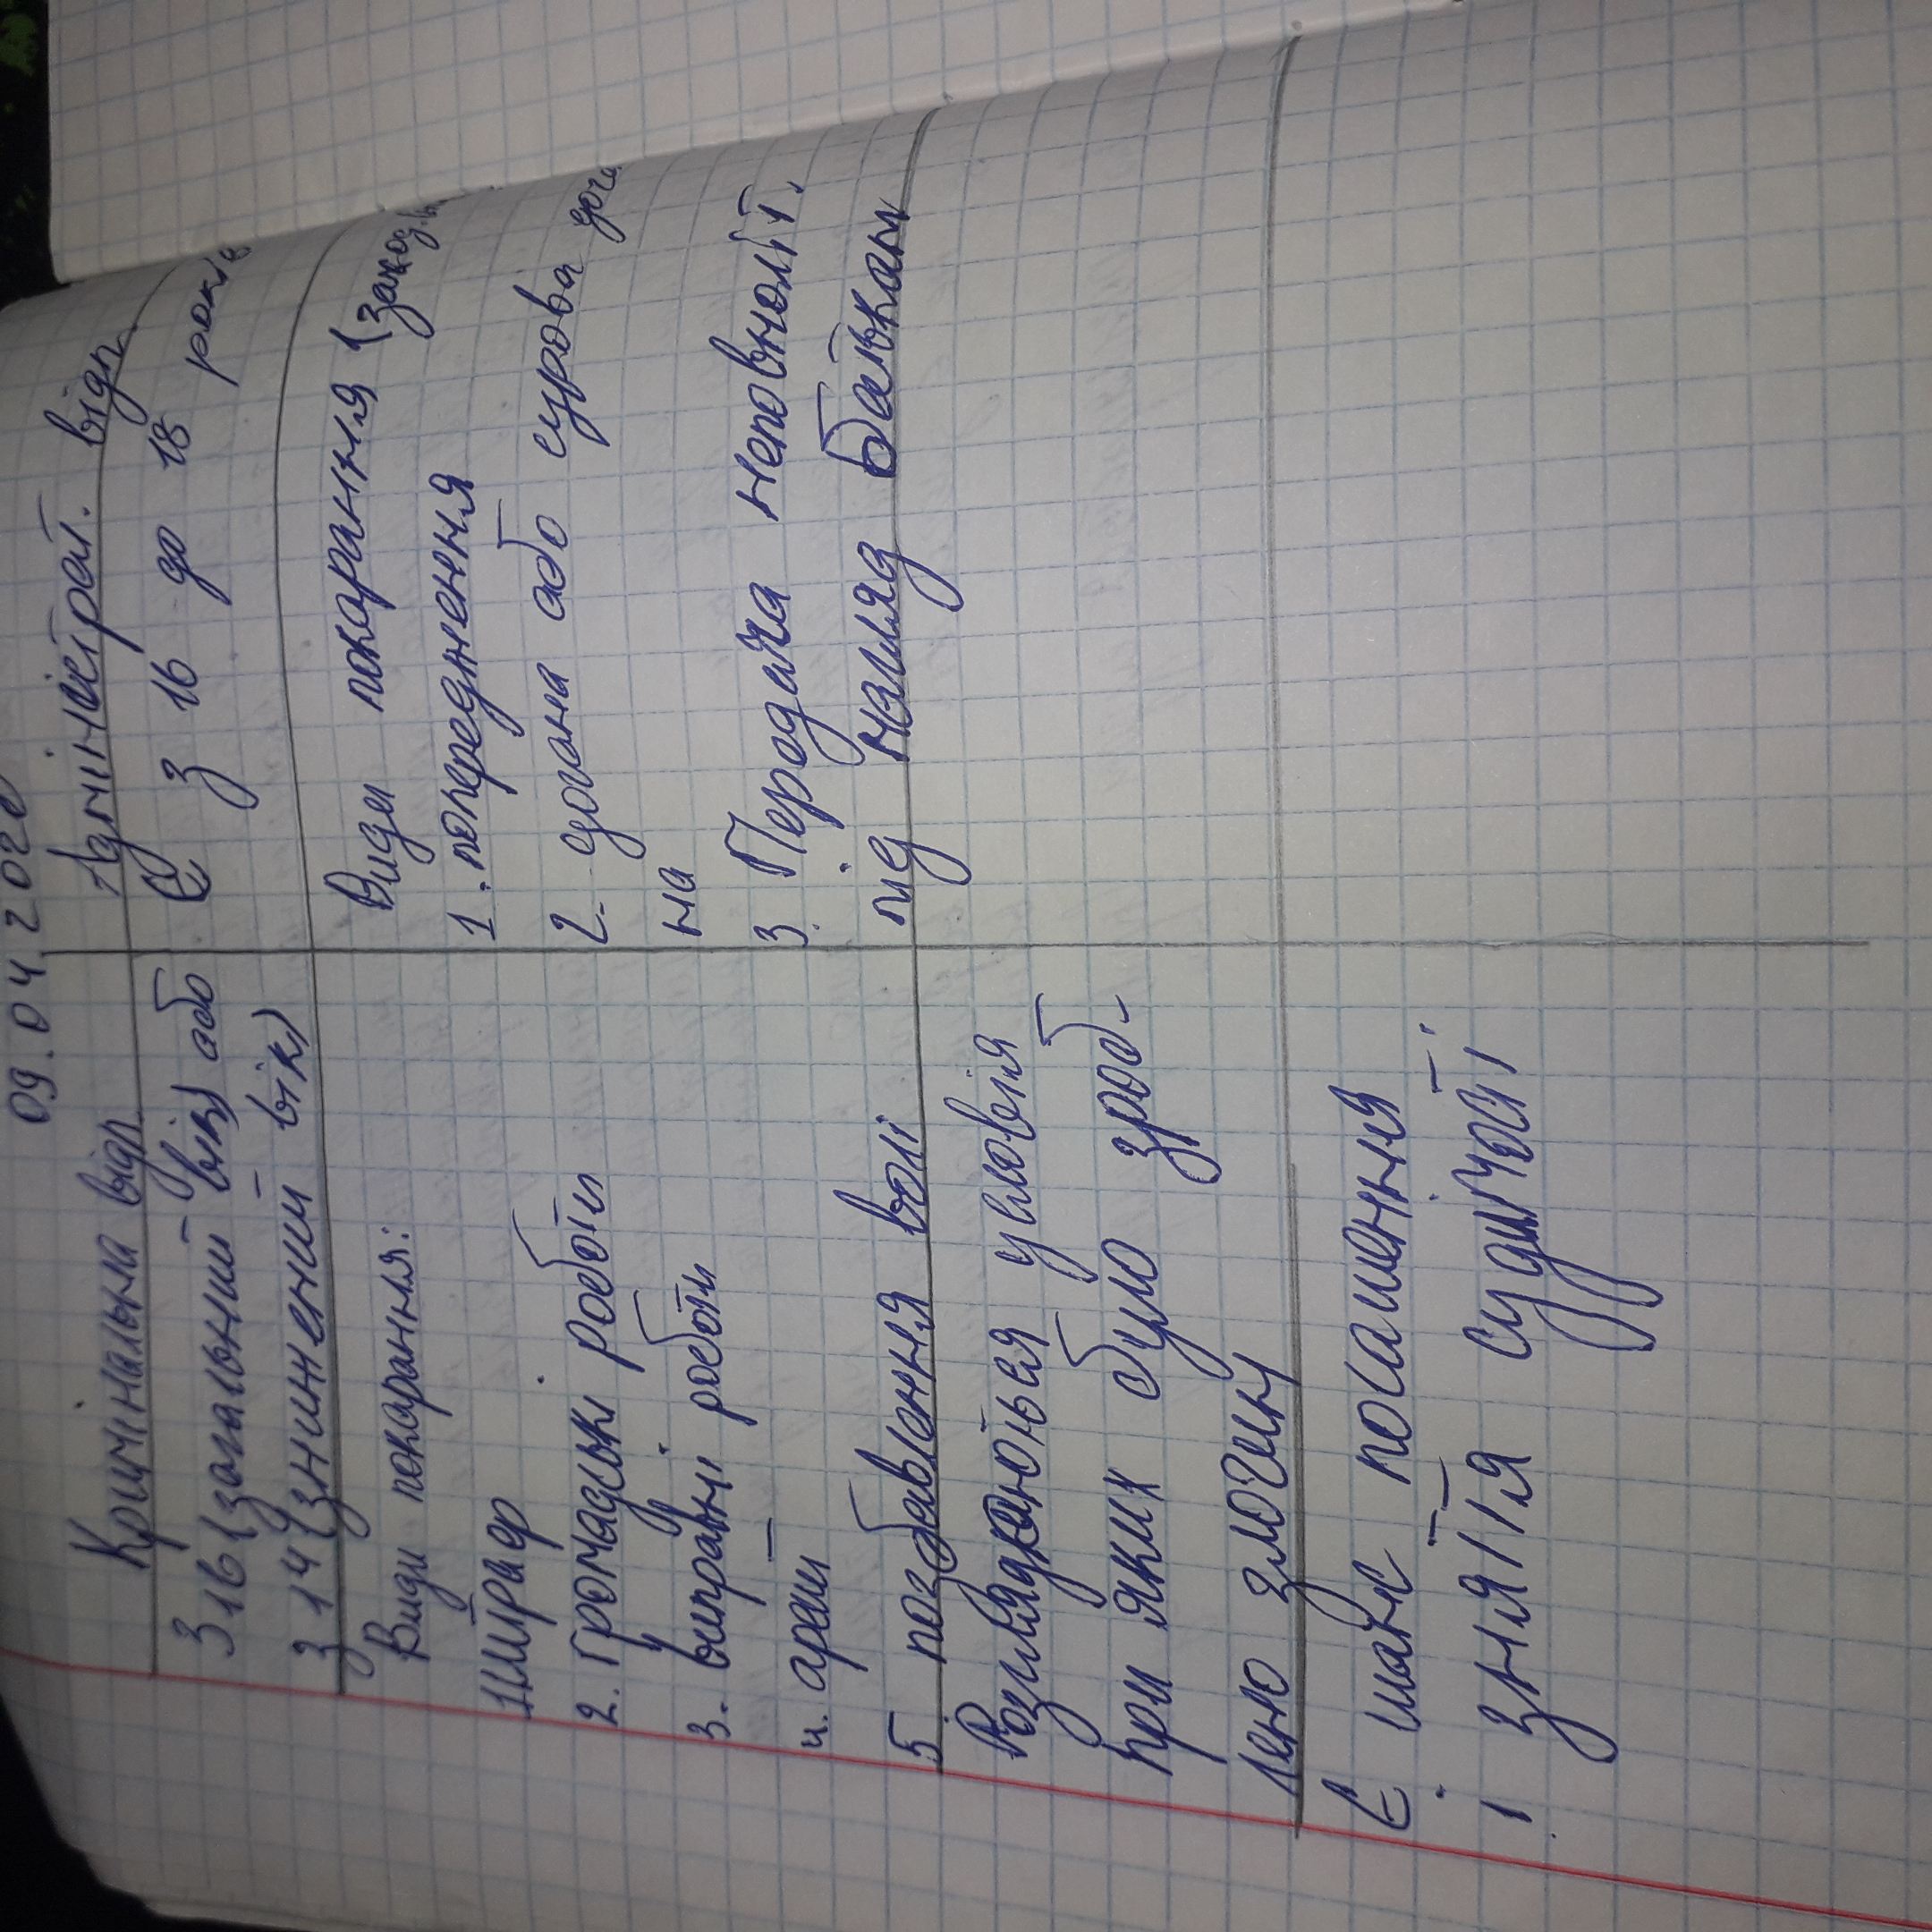 09.04.202
Кримінальна відп.
З 16 (загальний вік) або
з 14 (знижений вік)
Види покарання:
1. Штраф
2. Громадські роботи
3. виправні роботи
4. арешт
5 позбавлення волі
Розглядаються условія
при яких було зроб-
лено злочин
Є також погашення
і зняття судимості
Адміністрат. відп.
Є з 16 до 18 років
Види покарання (заход.
1. попередження
2. догана або сурова дога
на
3. Передача неповноліт.
під нагляд батькам